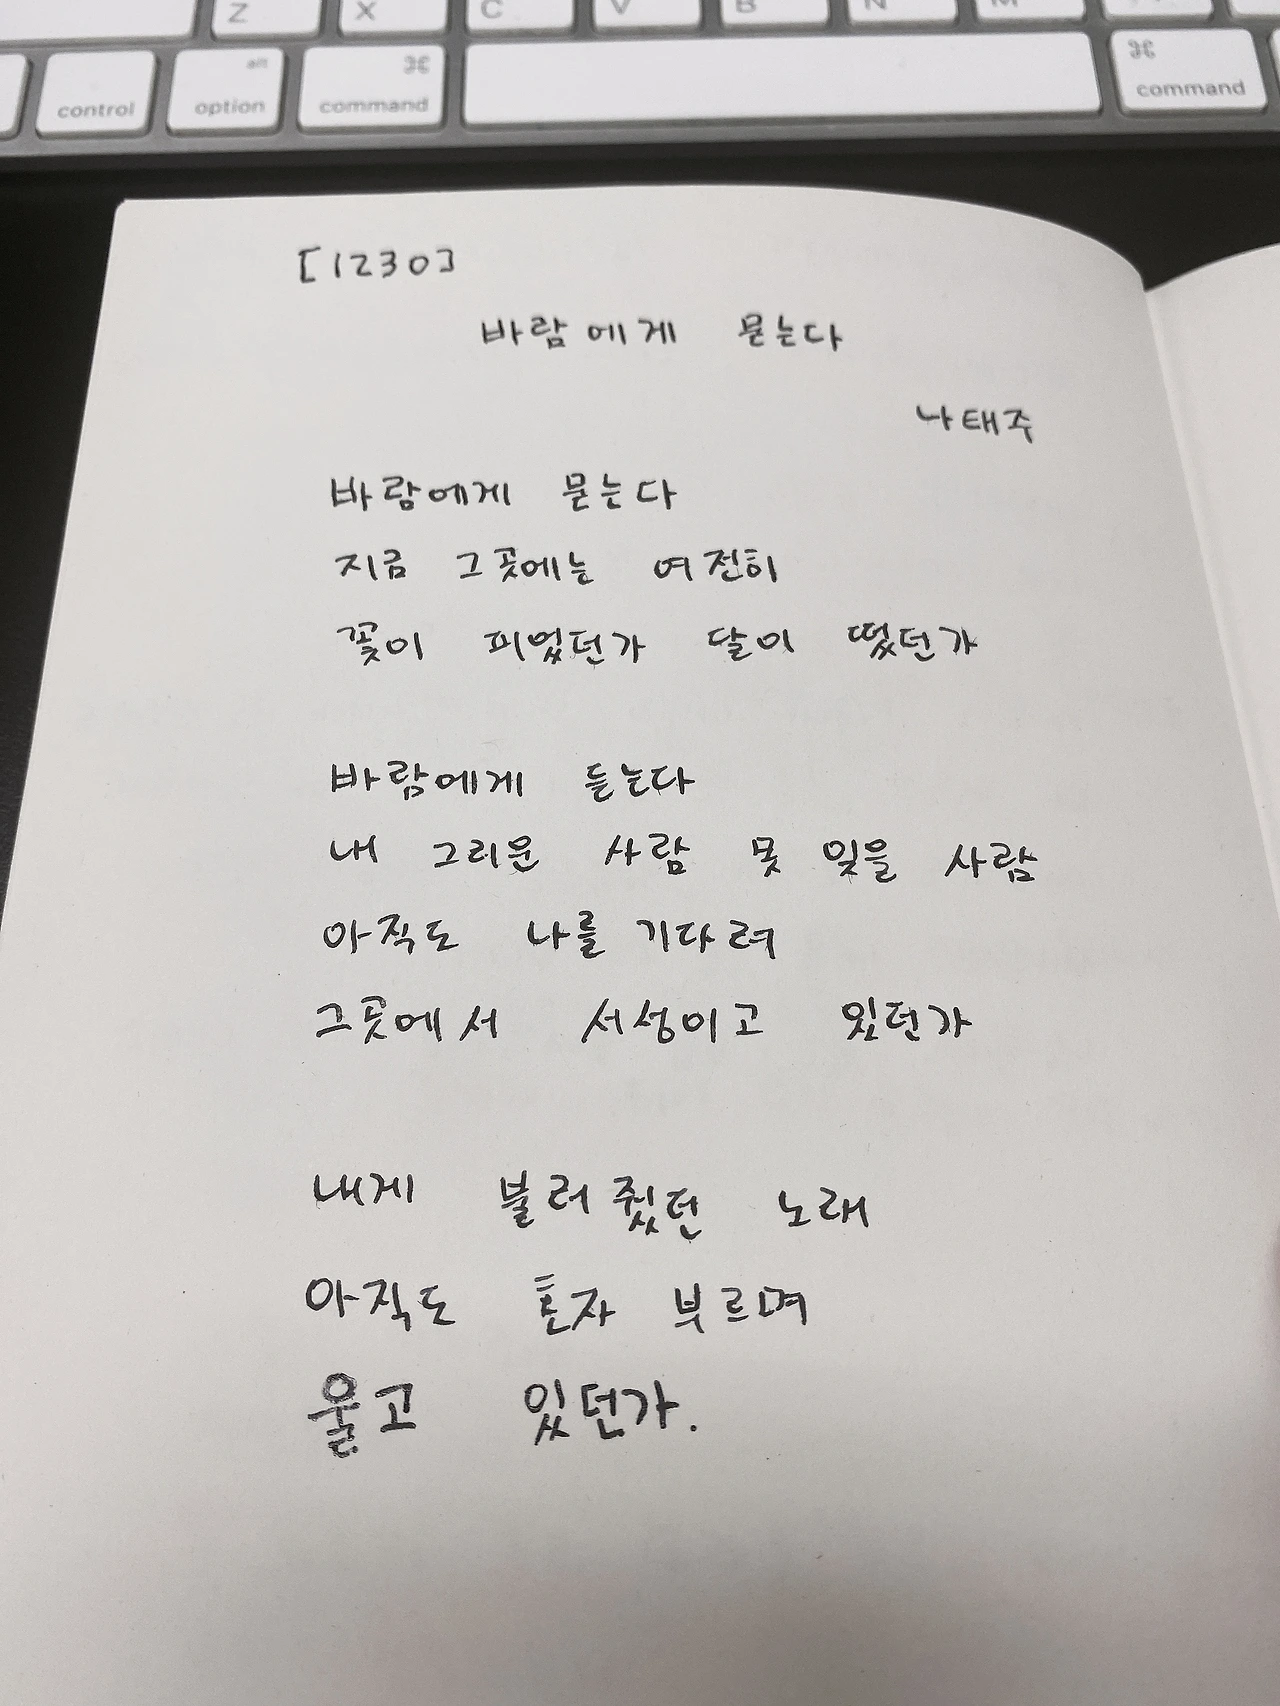 Z X C V B N M
control alt option ⌘ command ⌘ command
[1230]
바람에게 묻는다
나태주
바람에게 묻는다
지금 그곳에는 여전히
꽃이 피었던가 달이 떴던가
바람에게 듣는다
내 그리운 사람 못 잊을 사람
아직도 나를 기다려
그곳에서 서성이고 있던가
내게 불러줬던 노래
아직도 혼자 부르며
울고 있던가.